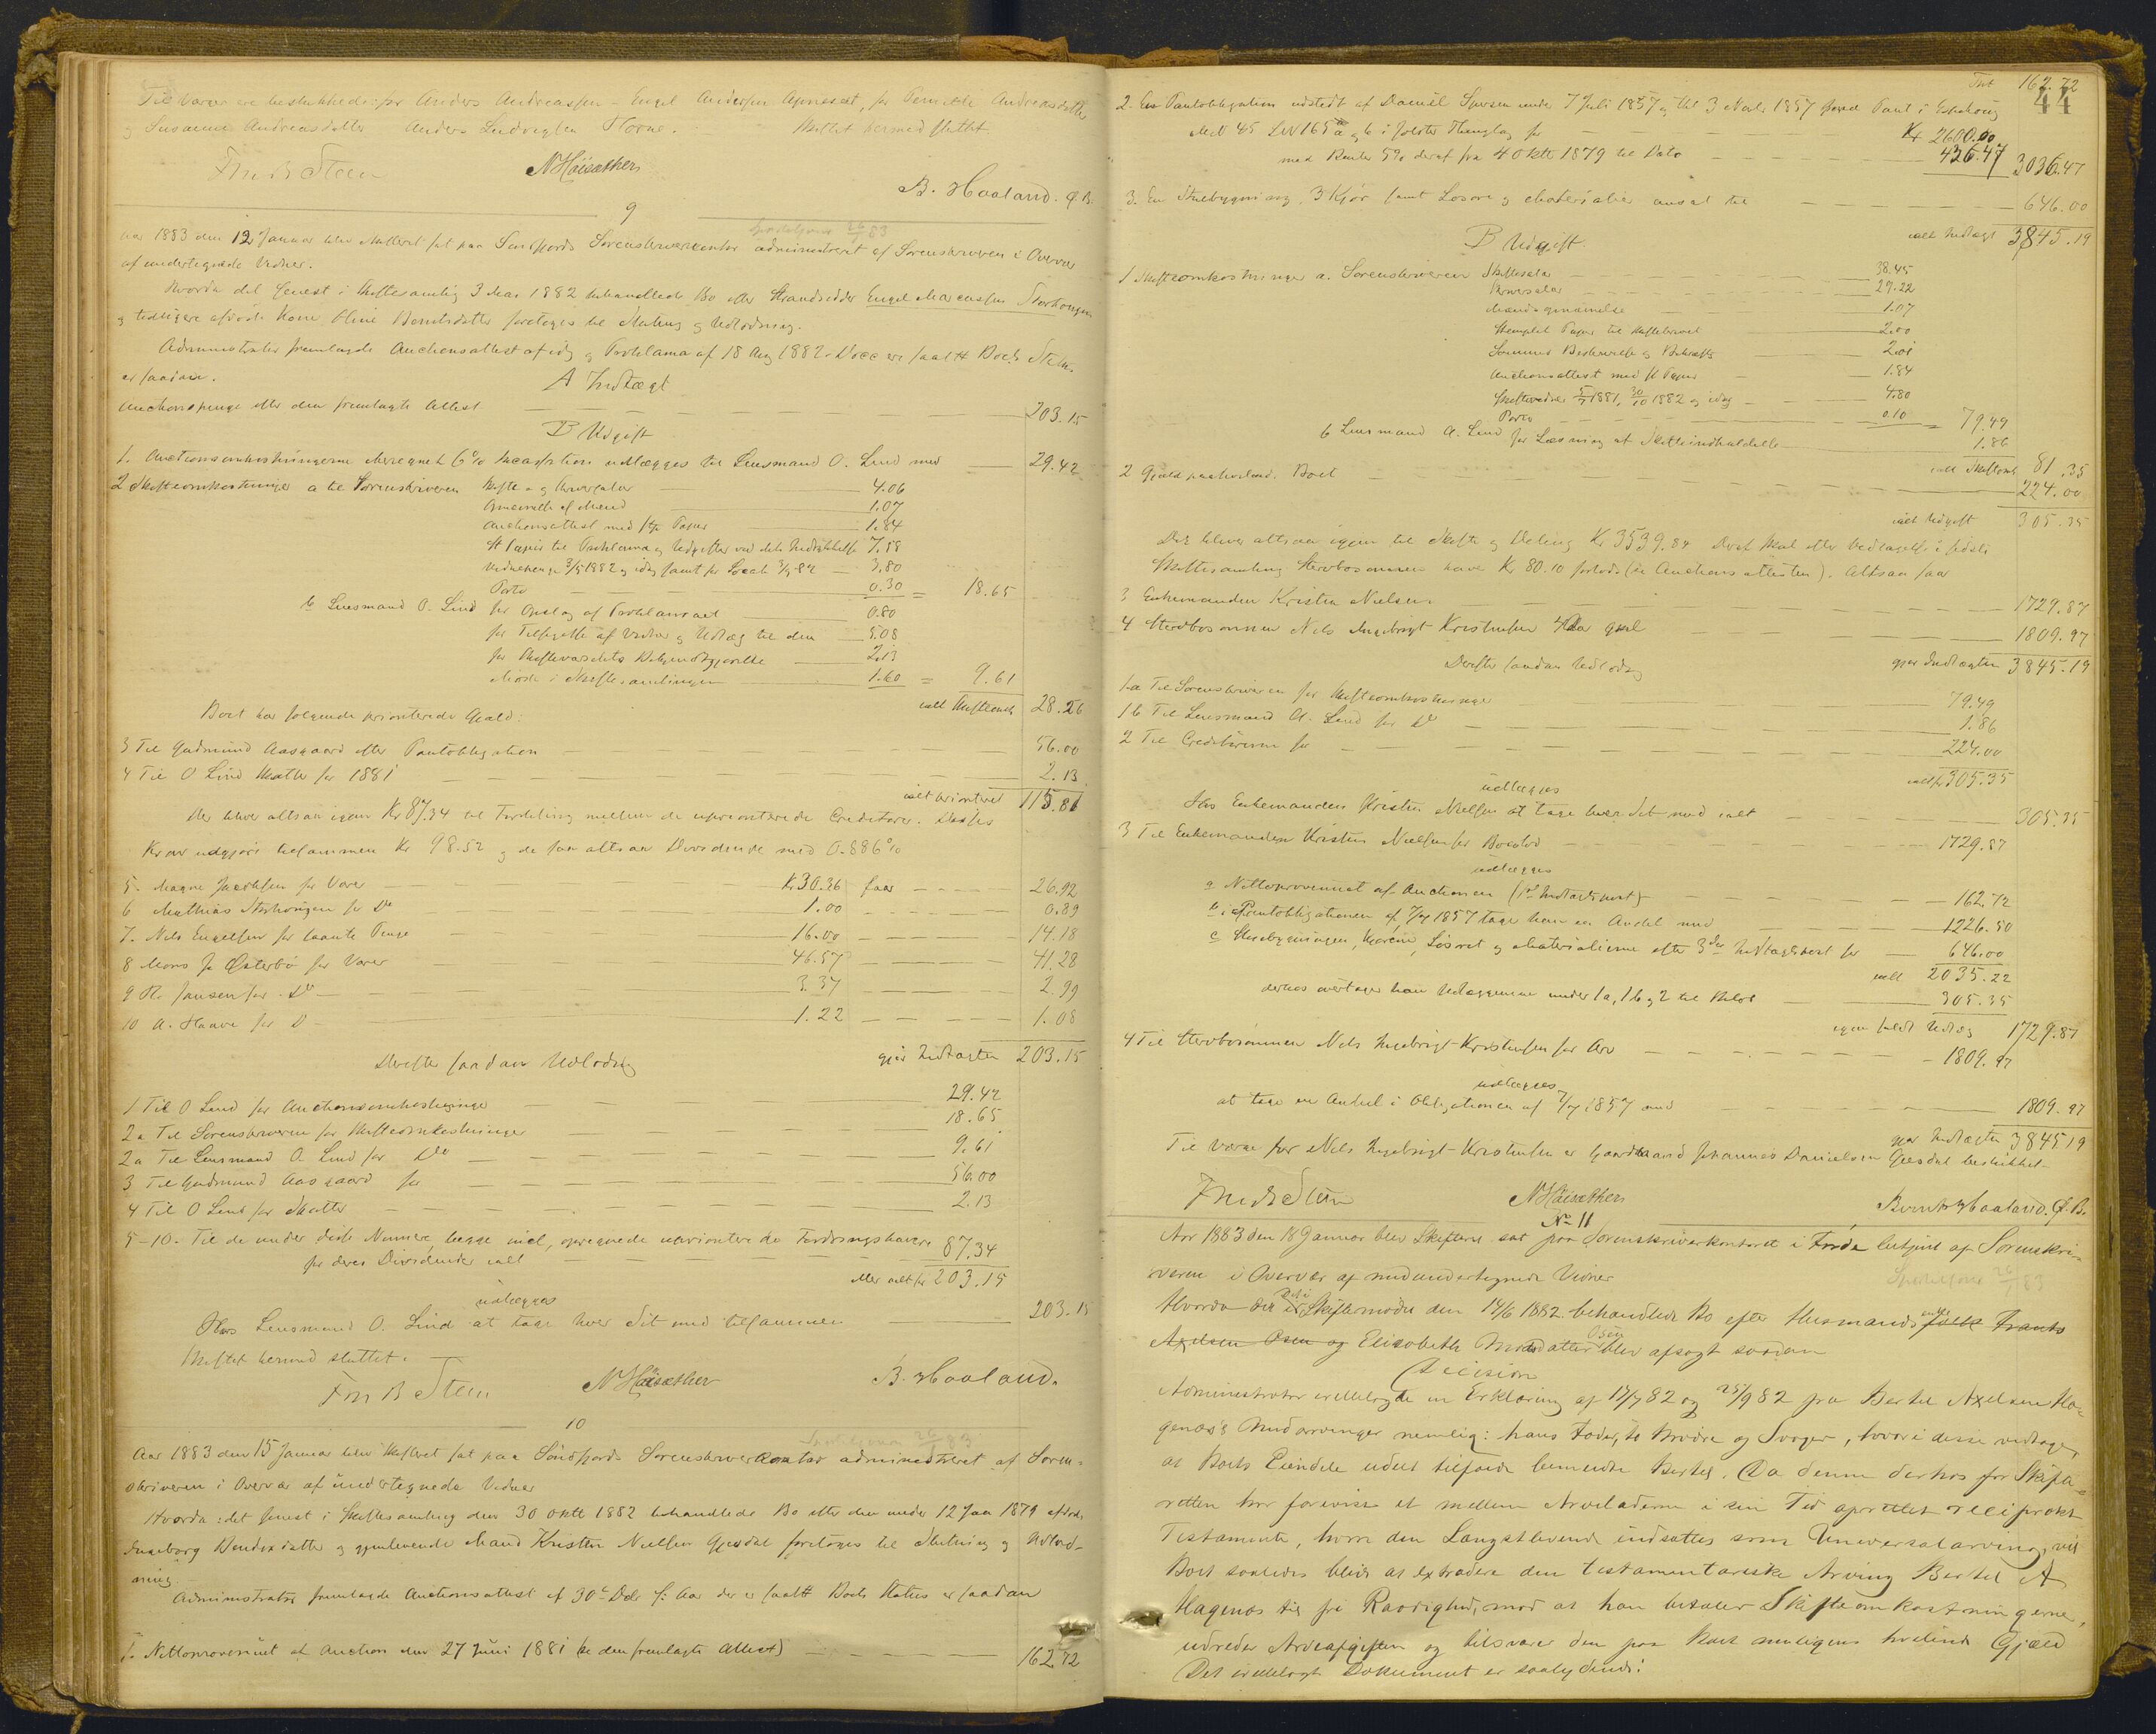 Til Værger ere beskikkede: for Anders Andreassen - Engel Andersen Apneset, for Pernille Andreasdatter
og Susanna Andreasdatter Anders Ludvigsen Horne. Skiftet hermed sluttet.
Fr. B Steen N Höisæther B. Haaland. Q. B.
9
Aar 1883 den 12 Januar blev Skifteret sat paa Söndfjords Sorenskriverkontor administreret af Sorenskriveren i Overvær
af undertegnede Vidner.
Hvorda det senest i Skiftesamling 3 Mai 1882 behandlede Bo efter Strandsidder Engel Marcussen Storhougen
og tidligere afdøde Kone Oline Berntsdatter foretoges til Slutning og Udlodning.
Administrator fremlagde Auctionsattest af idag og Proklama af 18 Aug 1882. Docc ere saal # Boets Status
er saadan.
A Indtægt
Auctionspenge efter den fremlagte Attest 203.15
B Udgift
1. Auctionsomkostningerne iberegnet 6% Incassation udlægges til Lensmand O. Lind med 29.42
2 Skifteomkostninger a til Sorenskriveren Skifte- og Skriversalær 4.06
Opnævnelse af Mænd 1.07
Auctionsattest med st Papir 1.84
St Papir til Proklama og Udgifter ved dets Indrykkelse 7.58
Vidnepenge 3/5 1882 og idag samt for 3/5 82 3.80
Porto 0.30 = 18.65
b Lensmand O. Lind for Opslag af Proklamaet 0.80
for Tilsigelse af Vidner og Udlæg til dem 5.08
for Skiftevarslets Bekjendtgjørelse 2.13
Møde i Skiftesamlingen 1.60 = 9.61
ialt Skifteomk 28.26
Boet har følgende prioriterede Gjæld:
3 Til Gudmund Aasgaard efter Pantobligation 56.00
4 Til O Lind Skatter for 1881 2.13
ialt prioriteret 115.81
Der bliver altsaa igjen Kr 87.34 til Fordeling mellem de uprioriterede Creditorer. Disses
Krav udgjør tilsammen Kr 98.52 og de faar altsaa Dividende med 0.886%
5. Magne Jacobsen for Varer Kr 30.36 faar 26.92
6 Mathias Storhougen for Do 1.00 0.89
7. Nils Engelsen for laante Penge 16.00 14.18
8 Mons J. Østerbö for Varer 46.57 41.28
9 R. Jansen for Do 3.37 2.99
10 A. Haave for D 1.22 1.08
gjør Indtægten 203.15
Derefter saadan Udlodning
1 Til O Lind for Auctionsomkostninger 29.42
2a Til Sorenskriveren for Skifteomkostninger 18.65
2a Til Lensmand O. Lind for Do 9.61
3 Til Gudmund Aasgaard for 56.00
4 Til O Lind for Skatter 2.13
5-10. Til de under disse Numere, begge incl, opregnede uprioriterede Fordringshavere
for deres Dividender ialt 87.34
eller ialt kr 203.15
udlægges
Hos Lensmand O. Lind at tage hver Sit med tilsammen 203.15
Skiftet hermed sluttet.
Fr. B Steen N Höisæther B. Haaland.
10
Aar 1883 den 15 Januar blev Skifteret sat paa Söndfjords Sorenskriverkontor administreret af Soren-
skriveren i Overvær af undertegnede Vidner
Hvorda: det senest i Skiftesamling den 30 oktb 1882 behandlede Bo efter den under 12 Jan 1879 afdøde
Ingeborg Bendixdatter og gjenlevende Mand Kristen Nielsen Gjesdal foretoges til Slutning og Udlod-
ning.
Administrator fremlagde Auctionsattest af 30te Dcbr f: Aar der er saal # Boets Status er saadan
1. Nettoprovenuet af Auction den 27 Juni 1881 (se den fremlagte Attest) 162.72
Trt 162.72
44
2. En Pantobligation udstedt af Daniel Sjursen under 7 Juli 1857 og thl 3 Novb. 1857 mod Pant i
MN 45 LN 165 a og b i Jølster Thinglag for Kr 2600.00
med Renter 5% deraf fra 4 Oktb 1879 til Dato 436.47 3036.47
3. En Stuebygning, 3 Kjør samt Løsøre og Materialier ansat til 646.00
ialt Indtægt 3845.19
B Udgift.
1 Skifteomkostninger a. Sorenskriveren Skiftesalær 38.45
Skriversalær 29.22
Mænds opnævnelse 1.07
Stemplet Papir til Skiftebrevet 2.00
Sammes Beskrivelse og Bekræft 2.01
Auctionsattest med st Papir 1.84
Skiftevidner 1881, 30/10 1882 og idag 4.80
Porto 0.10 = 79.49
b Lensmand A. Lind for Læsning af Skifteindkaldelse 1.86
ialt Skifteomk 81.35
2 Gjæld paahvilende Boet 224.00
ialt Udgift 305.35
Der bliver altsaa igjen til Skifte og Deling Kr 3539.84 Deraf skal efter Vedtagelse i sidste
Skiftesamling Stervbosønnen have Kr 80.10 forlods (se Auctionsattesten). Altsaa faar
3 Enkemanden Kristen Nielsen 1729.87
4 Stervbosønnen Nils Ingebrigt Kristensen 1809.97
gjør Indtægten 3845.19
Derefter saadan Udlodning
1a Til Sorenskriveren for Skifteomkostninger 79.49
1b Til Lensmand A. Lind for Do 1.86
2 Til Creditorerne for 224.00
ialt kr 305.35
udlægges
Hos Enkemanden Kristen Nielsen at tage hver Sit med ialt 305.35
3 Til Enkemanden Kristen Nielsen for Boeslod 1729.87
udlægges
a Nettoprovenuet af Auctionen (1ste Indtægtspost) 162.72
b i Pantobligationen af 7/7 1857 tage han en Andel med 1226.50
c Stuebygningen, Kjørene, Løsøret og Materialierne efter 3die Indtægtspost for 646.00
ialt 2035.22
derhos overtager han Udlæggene under 1a, 1b og 2 til Beløb 305.35
igjen fuldt Udlæg 1729.87
4 Til Stervbosønnen Nils Ingebrigt Kristensen for Arv 1809.97
udlægges
at tage en Andel i Obligationen af 7/7 1857 med 1809.97
gjør Indtægten 3845.19
Til Værge for Nils Ingebrigt Kristensen er Gaardmand Johannes Danielsen Gjesdal beskikket.
Fr. B Steen N Höisæther Bernt Haaland. Q. B.
No 11
Aar 1883 den 18 Januar blev Skifteret sat paa Sorenskriverkontoret i Førde betjent af Sorenskri-
veren i Overvær af medundertegnede Vidner
Hvorda det i Skiftemøde den 14/6 1882 behandlede Bo efter Husmandsfolk enke Frants
Axelsen Osen og Elisabeth Monsdatter Osen blev afsagt saadan
Decision
Administrator irettelagde en Erklæring af 17/7 82 og 25/9 82 fra Bertel Axelsen Ha-
genæs's Medarvinger nemlig: hans Fader, to Brødre og Svoger, hvori disse vedtage,
at Boets Eiendele udelt tilfalde bemeldte Bertel. Da denne derhos for Skifte-
retten har forevist et mellem Arveladerne i sin Tid oprettet reciprokt
Testamente, hvori den Længstlevende indsattes som Universalarving, vil
Boet saaledes blive at extradere den testamentariske Arving Bertel A
Hagenæs til fri Raadighed, mod at han betaler Skifteomkostningerne,
udreder Arveafgiften og tilsvarer den paa Boet muligens hvilende Gjæld
Det irettelagte Dokument er saalydende: